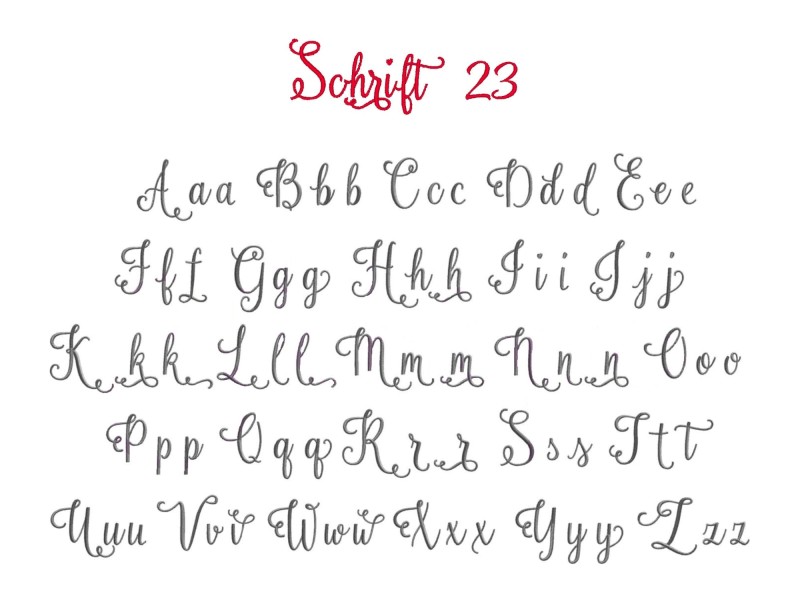 Schrift 23
Aaa Bbb Ccc Ddd Eee
Fff Ggg Hhh Iii Jjj
Kkk Lll Mmm Nnn Ooo
Ppp Qqq Rrr Sss Ttt
Uuu Vvv Www Xxx Yyy Zzz